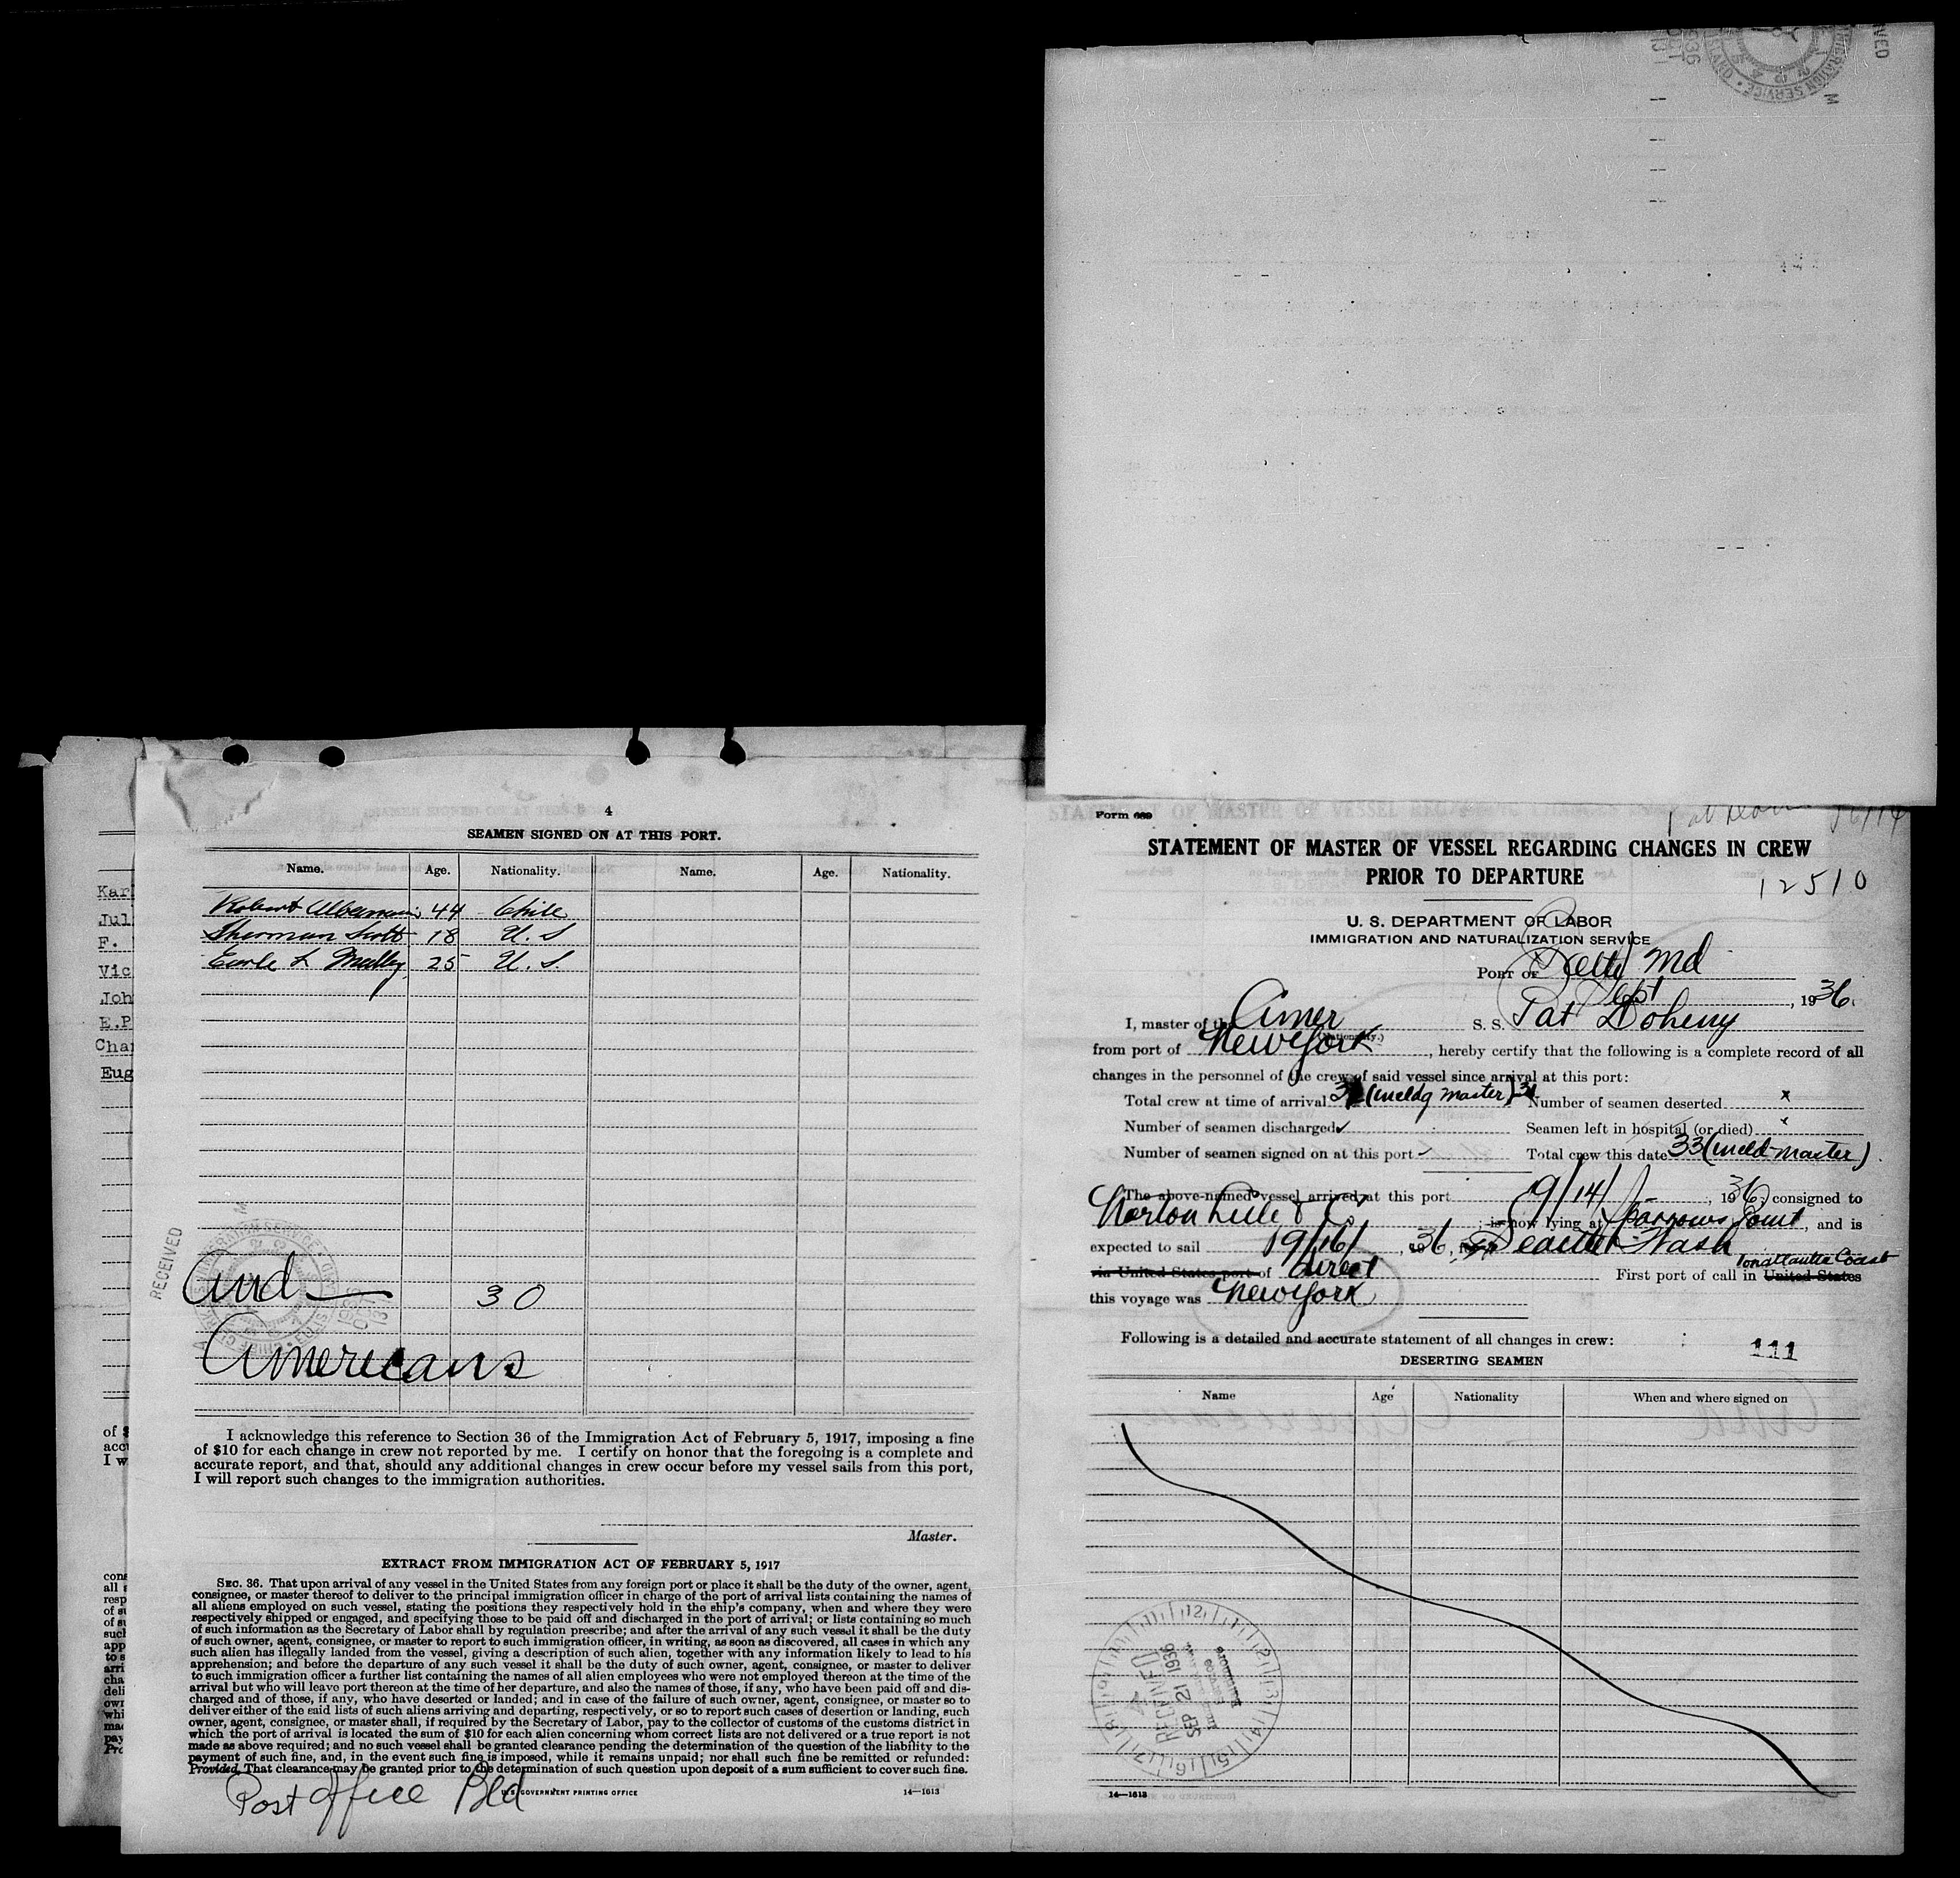 4
SEAMEN SIGNED ON AT THIS PORT.
Name. Age. Nationality. Name. Age. Nationality.
Robert 44 Chile
Sherman Scott 18 U. S
Earle L 25 U. S.
And 30
Americans
RECEIVED
I acknowledge this reference to Section 36 of the Immigration Act of February 5, 1917, imposing a fine
of $10 for each change in crew not reported by me. I certify on honor that the foregoing is a complete and
accurate report, and that, should any additional changes in crew occur before my vessel sails from this port,
I will report such changes to the immigration authorities.
Master.
EXTRACT FROM IMMIGRATION ACT OF FEBRUARY 5, 1917
SEC. 36. That upon arrival of any vessel in the United States from any foreign port or place it shall be the duty of the owner, agent,
consignee, or master thereof to deliver to the principal immigration officer in charge of the port of arrival lists containing the names of
all aliens employed on such vessel, stating the positions they respectively hold in the ship's company, when and where they were
respectively shipped or engaged, and specifying those to be paid off and discharged in the port of arrival; or lists containing so much
of such information as the Secretary of Labor shall by regulation prescribe; and after the arrival of any such vessel it shall be the duty
of such owner, agent, consignee, or master to report to such immigration officer, in writing, as soon as discovered, all cases in which any
such alien has illegally landed from the vessel, giving a description of such alien, together with any information likely to lead to his
apprehension; and before the departure of any such vessel it shall be the duty of such owner, agent, consignee, or master to deliver
to such immigration officer a further list containing the names of all alien employees who were not employed thereon at the time of the
arrival but who will leave port thereon at the time of her departure, and also the names of those, if any, who have been paid off and dis-
charged and of those, if any, who have deserted or landed; and in case of the failure of such owner, agent, consignee, or master so to
deliver either of the said lists of such aliens arriving and departing, respectively, or so to report such cases of desertion or landing, such
owner, agent, consignee, or master shall, if required by the Secretary of Labor, pay to the collector of customs of the customs district in
which the port of arrival is located the sum of $10 for each alien concerning whom correct lists are not delivered or a true report is not
made as above required; and no such vessel shall be granted clearance pending the determination of the question of the liability to the
payment of such fine, and, in the event such fine is imposed, while it remains unpaid; nor shall such fine be remitted or refunded:
Provided, That clearance may be granted prior to the determination of such question upon deposit of a sum sufficient to cover such fine.
Post Office Bld
U. S. GOVERNMENT PRINTING OFFICE 14—1613
Kar
Jul
F.
Vic
Joh
E.P
Char
Eug
Form 689
STATEMENT OF MASTER OF VESSEL REGARDING CHANGES IN CREW
PRIOR TO DEPARTURE
12510
U. S. DEPARTMENT OF LABOR
IMMIGRATION AND NATURALIZATION SERVICE
PORT OF Md
Sept , 1936.
I, master of the Amer S. S. Pat Doheny
(Nationality.)
from port of New York , hereby certify that the following is a complete record of all
changes in the personnel of the crew of said vessel since arrival at this port:
Total crew at time of arrival (incldg master) Number of seamen deserted x
Number of seamen discharged Seamen left in hospital (or died)
Number of seamen signed on at this port Total crew this date 33 (incld master)
The above-named vessel arrived at this port 9/14/ , 1936, consigned to
Norton Lilly & Co ; is now lying at Sparrows Point, and is
expected to sail 9/16/ , 1936, for Seattle Wash
via United States port of direct First port of call in United States on atlantic Coast
this voyage was New York
Following is a detailed and accurate statement of all changes in crew:
111
DESERTING SEAMEN
Name Age Nationality When and where signed on
RECEIVED
SEP 21 1936
BALTIMORE
14—1613